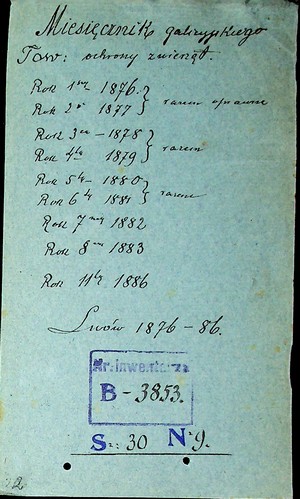 Miesięcznik galicyjskiego
Tow: ochrony zwierząt.
Rok 1szy 1876.
Rok 2gi 1877 razem oprawne
Rok 3ci - 1878
Rok 4ty 1879 razem
Rok 5ty - 1880
Rok 6ty 1881 razem
Rok 7my 1882
Rok 8my 1883
Rok 11ty 1886
Lwów 1876-86.
Nr. inwentarza
B - 3853.
S. 30 N 9.
2